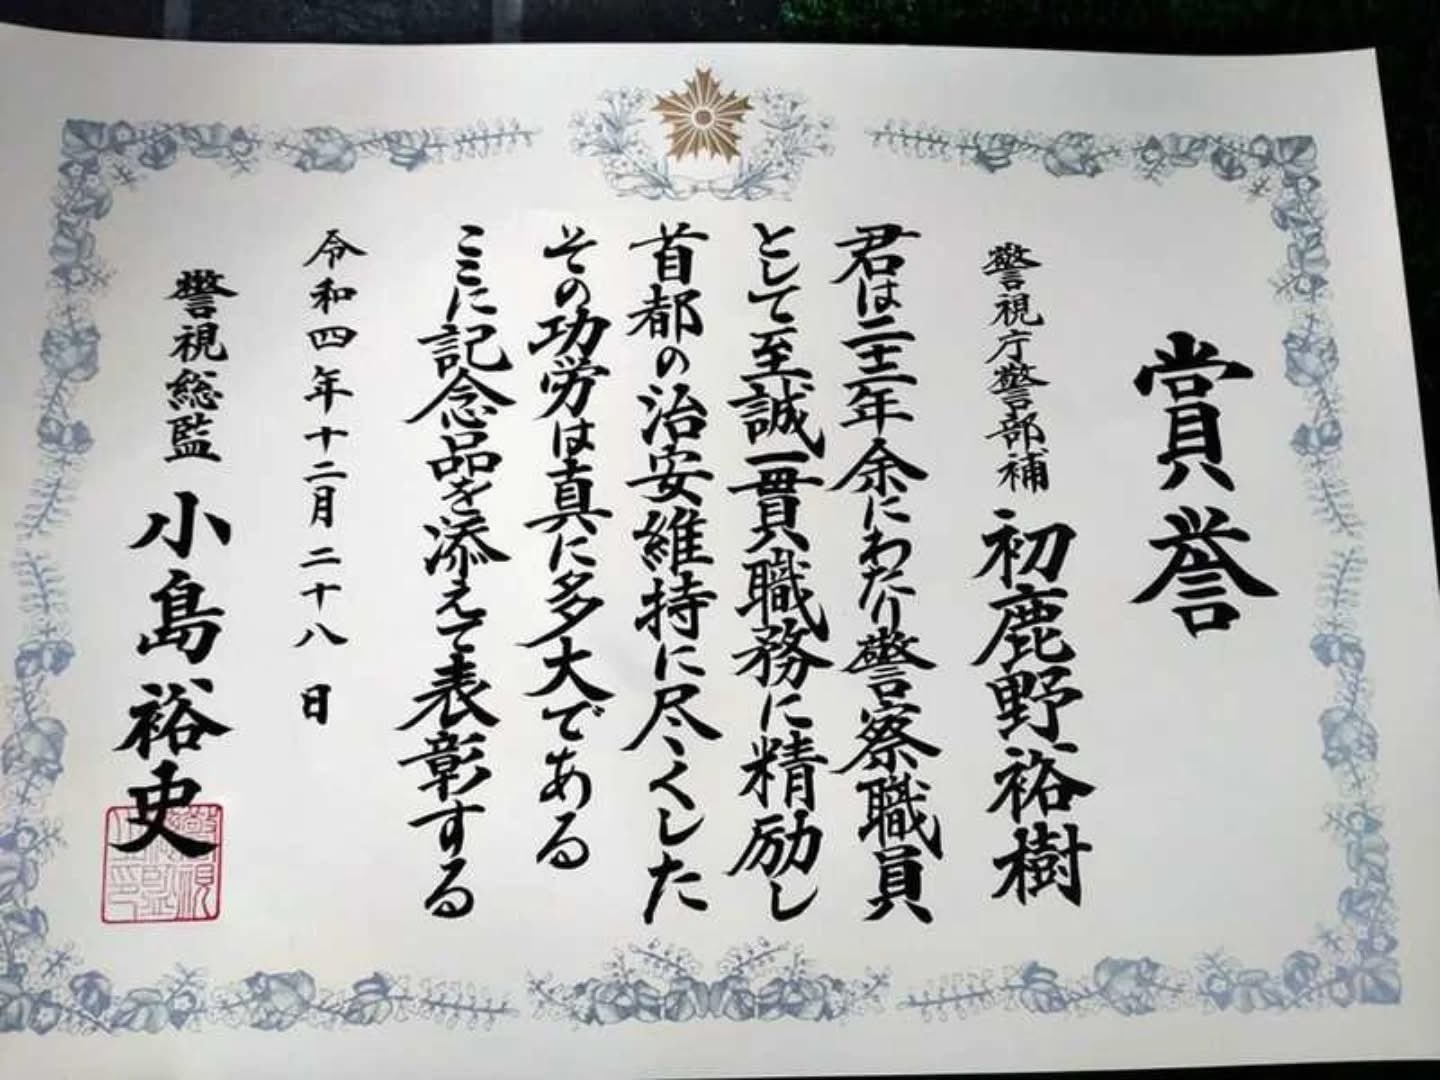 賞誉
警視庁警部補 初鹿野裕樹
君は二十三年余にわたり警察職員
として至誠一貫職務に精励し
首都の治安維持に尽くした
その功労は真に多大である
ここに記念品を添えて表彰する
令和四年十二月二十八日
警視総監 小島裕史